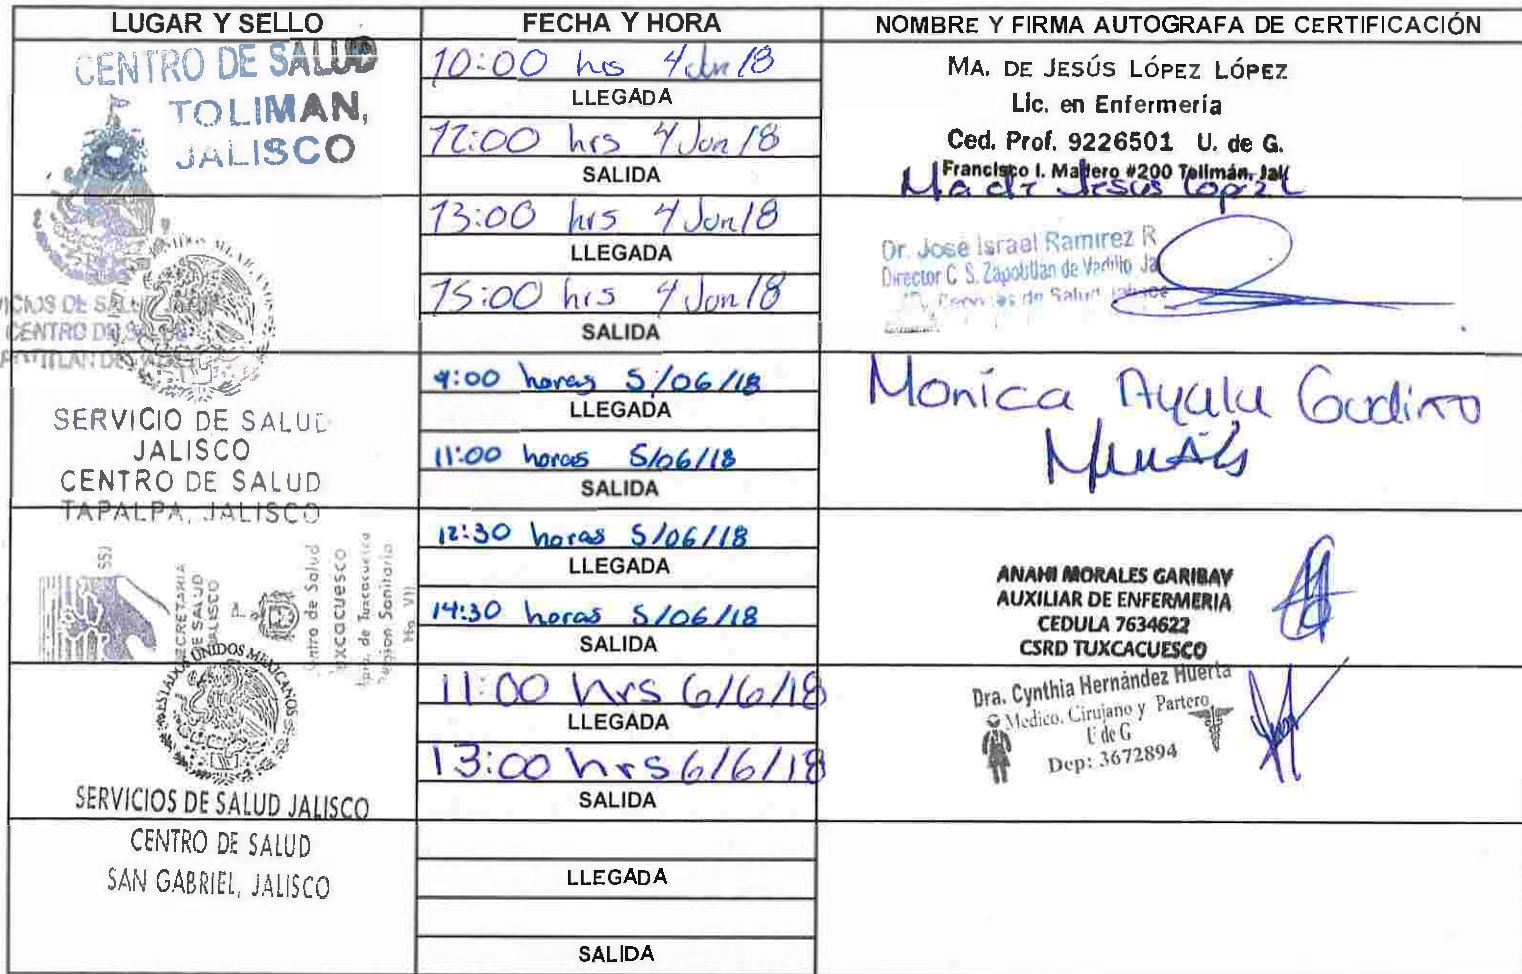 LUGAR Y SELLO
FECHA Y HORA
NOMBRE Y FIRMA AUTOGRAFA DE CERTIFICACIÓN
CENTRO DE SALUD
TOLIMAN,
JALISCO
10:00 hrs 4 Jun 18
LLEGADA
12:00 hrs 4 Jun 18
SALIDA
MA. DE JESÚS LÓPEZ LÓPEZ
Lic. en Enfermería
Ced. Prof. 9226501 U. de G.
Francisco I. Madero #200 Tolimán, Jal
Ma de Jesus Lopez L
CENTRO DE
13:00 hrs 4 Jun 18
LLEGADA
15:00 hrs 4 Jun 18
SALIDA
Dr. José Israel Ramirez R
Director C. S. Zapotitlan de Vadillo Ja
de Salud Jalisco
SERVICIO DE SALUD
JALISCO
CENTRO DE SALUD
TAPALPA, JALISCO
9:00 horas 5/06/18
LLEGADA
11:00 horas 5/06/18
SALIDA
Monica Ayala Gudiño
SSJ
SECRETARIA
DE SALUD
JALISCO
Centro de Salud
Tuxcacuesco
Mpio. de Tuxcacuesco
Region Sanitaria
No. VII
12:30 horas 5/06/18
LLEGADA
14:30 horas 5/06/18
SALIDA
ANAHI MORALES GARIBAY
AUXILIAR DE ENFERMERIA
CEDULA 7634622
CSRD TUXCACUESCO
ESTADOS UNIDOS MEXICANOS
SERVICIOS DE SALUD JALISCO
CENTRO DE SALUD
SAN GABRIEL, JALISCO
11:00 hrs 6/6/18
LLEGADA
13:00 hrs 6/6/18
SALIDA
Dra. Cynthia Hernández Huerta
Medico. Cirujano y Partero
U de G
Dep: 3672894
LLEGADA
SALIDA